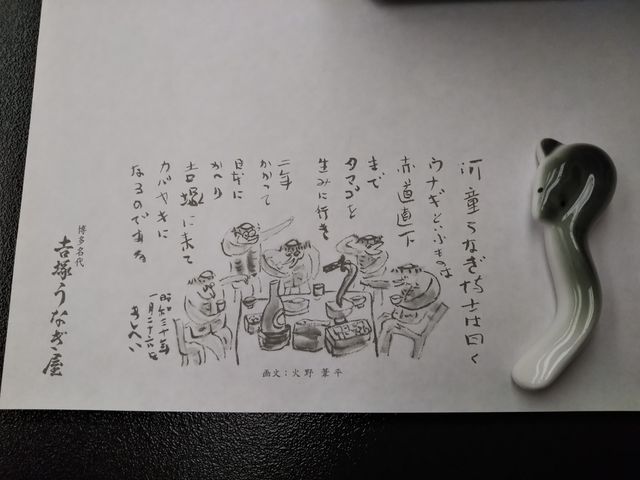 河童うなぎ博士は曰く
ウナギといふものは
赤道直下
まで
タマゴを
生みに行き
二年
かかつて
日本に
かへり
吉塚に来て
カバヤキに
なるのである
昭和三十年
一月二十六日
あしへい
画文：火野葦平
博多名代
吉塚うなぎ屋